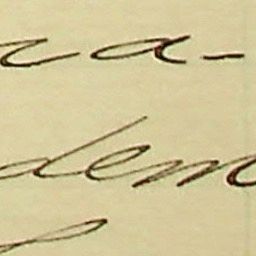 ra-
dem